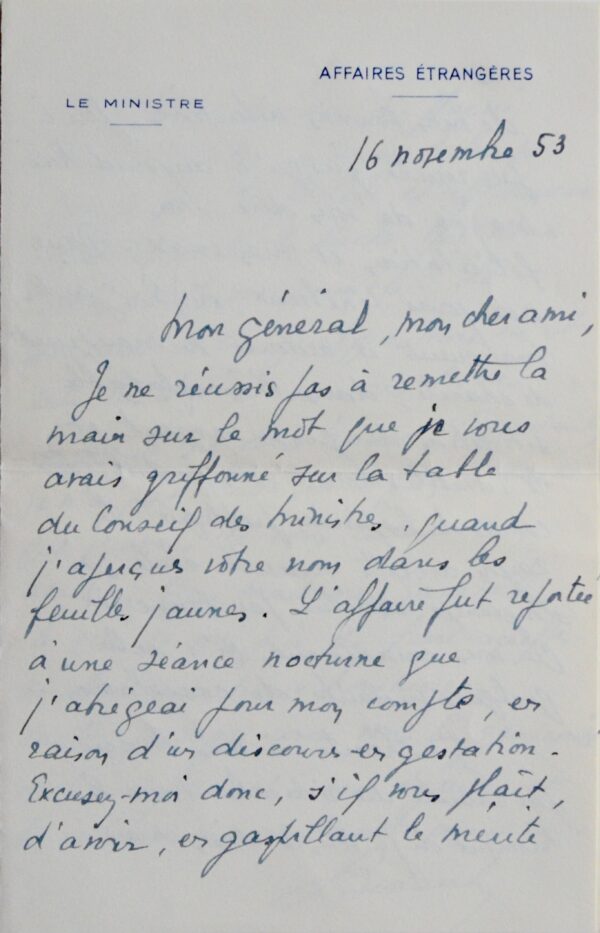 AFFAIRES ÉTRANGÈRES
LE MINISTRE
16 novembre 53
Mon général, mon cher ami,
Je ne réussis pas à remettre la
main sur le mot que je vous
avais griffonné sur la table
du Conseil des ministres, quand
j'aperçus votre nom dans les
feuilles jaunes. L'affaire fut reportée
à une séance nocturne que
j'abrégeai pour mon compte, en
raison d'un discours en gestation.
Excusez-moi donc, s'il vous plaît,
d'avoir, en gaspillant le mérite